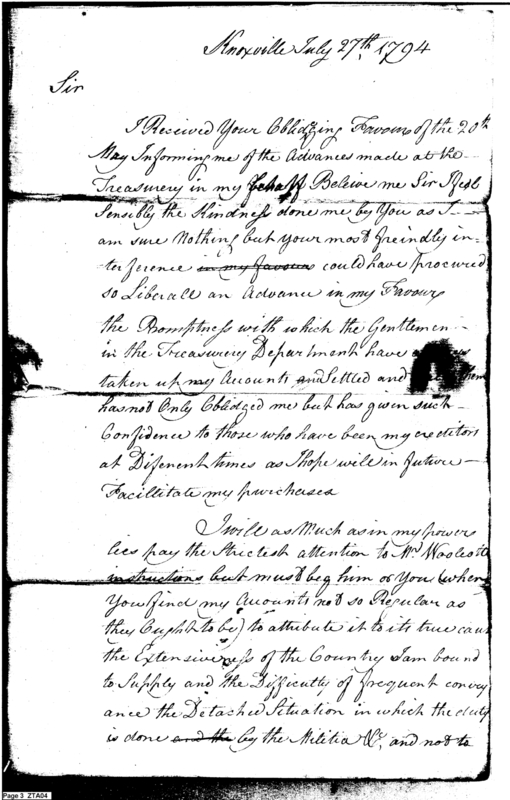 Knoxville July 27th 1794
Sir
I Received Your Oblidgeing Favour of the 20th
May Informing me of the Advances made at the
Treasurery in my behalf Beleive me Sir I feel
Sensibly the Kindness done me by You as I
am sure Nothing but your most freindly in-
terference in my favour could have procured
so Liberale an Advance in my Favour
the Promptness with which the Gentlemen
in the Treasurery Department have
taken up my Accounts and Settled and them
has not Only Oblidged me but has given such
Confidence to those who have been my creditors
at Diferent times as I hope will in future
Facillitate my purchases
I will as Much as in my power
lies pay the Strictest attention to Mr Woolcotts
instructions but must beg him or You (when
You find my Accounts not so Regular as
they Ought to be) to attribute it to its true cause
the Extensiveness of the Country I am bound
to Supply and the Difficulty of frequent convey
ance the Detached Situation in which the duty
is done and the by the Militia &c, and not to
Page 3 ZTA04